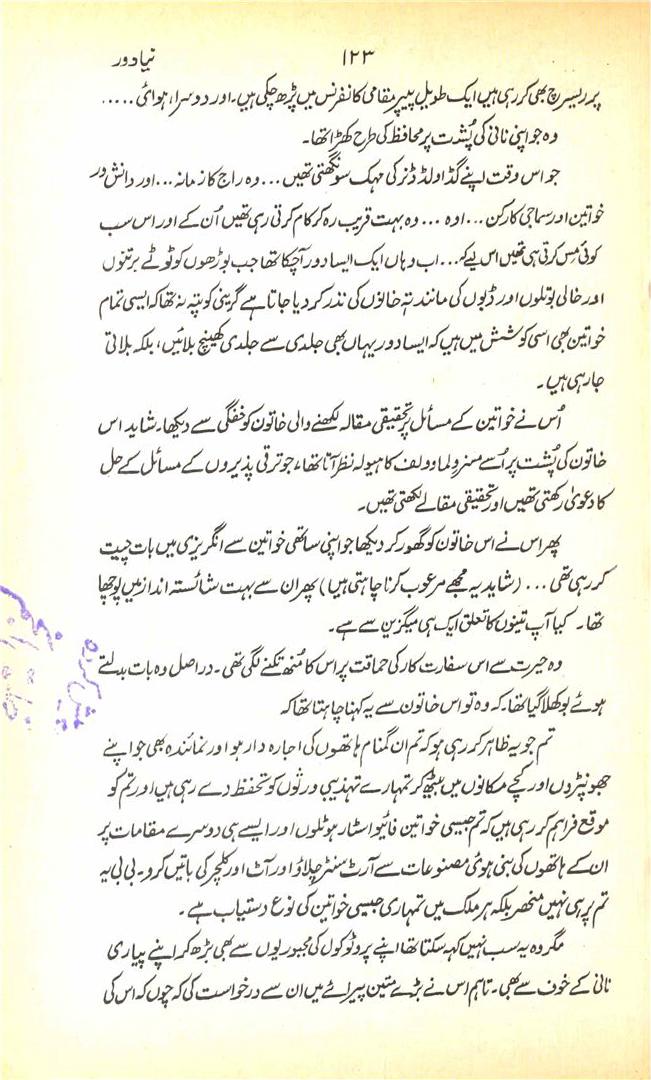 نیا دور ۱۲۳
پر ریسرچ بھی کر رہی ہیں ایک طویل پیپر مقامی کانفرنس میں پڑھ چکی ہیں۔ اور دوسرا، ہوائی .....
وہ جو اپنی نانی کی پُشت پر محافظ کی طرح کھڑا تھا۔
جو اس وقت اپنے گڈ اولڈ ڈنر کی مہک سونگھتی تھیں ... وہ راج کا زمانہ ... اور دانش ور
خواتین اور سماجی کارکن ... اوہ ... وہ بہت قریب رہ کر کام کرتی رہی تھیں اُن کے اور اس سب
کوئی مس کرتی ہی تھیں اس لیے کہ ... اب وہاں ایک ایسا دور آچکا تھا جب بوڑھوں کو ٹوٹے برتنوں
اور خالی بوتلوں اور ڈبوں کی مانند تہہ خانوں کی نذر کر دیا جاتا ہے گرینی کو پتہ نہ تھا کہ ایسی تمام
خواتین بھی اسی کوشش میں ہیں کہ ایسا دور یہاں بھی جلدی سے جلدی کھینچ بلائیں، بلکہ بلاتی
جا رہی ہیں۔
اُس نے خواتین کے مسائل پر تحقیقی مقالہ لکھنے والی خاتون کو خفگی سے دیکھا۔ شاید اس
خاتون کی پُشت پر اُسے مسز ولما وولف کا ہیولہ نظر آتا تھا، جو ترقی پذیروں کے مسائل کے حل
کا دعویٰ رکھتی تھیں اور تحقیقی مقالے لکھتی تھیں۔
پھر اس نے اس خاتون کو گھور کر دیکھا جو اپنی ساتھی خواتین سے انگریزی میں بات چیت
کر رہی تھی ... (شاید یہ مجھے مرعوب کرنا چاہتی ہیں) پھر ان سے بہت شائستہ انداز میں پوچھا
تھا۔ کیا آپ تینوں کا تعلق ایک ہی میگزین سے ہے۔
وہ حیرت سے اس سفارت کار کی حماقت پر اس کا مُنھ تکنے لگی تھی۔ دراصل وہ بات بدلتے
ہوئے بوکھلا گیا تھا۔ کہ وہ تو اس خاتون سے یہ کہنا چاہتا تھا کہ
تم جو یہ ظاہر کر رہی ہو کہ تم ان گمنام ہاتھوں کی اجارہ دار ہو اور نمائندہ بھی جو اپنے
جھونپڑوں اور کچے مکانوں میں بیٹھ کر تمہارے تہذیبی ورثوں کو تحفظ دے رہی ہیں اور تم کو
موقع فراہم کر رہی ہیں کہ تم جیسی خواتین فائیو اسٹار ہوٹلوں اور ایسے ہی دوسرے مقامات پر
ان کے ہاتھوں کی بنی ہوئی مصنوعات سے آرٹ سنٹر چلاؤ اور آٹ اور کلچر کی باتیں کرو۔ بی بی یہ
تم پر ہی نہیں منحصر بلکہ ہر ملک میں تمہاری جیسی خواتین کی نوع دستیاب ہے۔
مگر وہ یہ سب نہیں کہہ سکتا تھا اپنے پروٹوکول کی مجبوریوں سے بھی بڑھ کر اپنے پیاری
نانی کے خوف سے بھی۔ تاہم اس نے بڑے متین پیرائے میں ان سے درخواست کی کہ چوں کہ اس کی